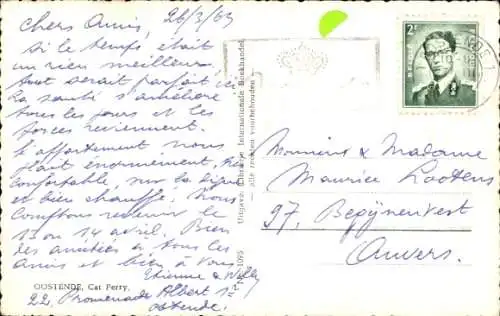 26/3/63
Chers Amis,
si le temps était
un rien meilleur,
tout serait parfait ici
La santé s'améliore
tous les jours et les
forces reviennent.
L'appartement nous
plait énormément, très
confortable, sur la digue
et bien chauffé. Nous
comptons revenir le
13 ou 14 avril. Bien
des amitiés à tous les
amis et bien à vous
Etienne & Nelly
OOSTENDE, Cat Ferry.
22, Promenade Albert 1er
Ostende.
Uitgave: Librairie Internationale Boekhandel
— alle rechten voorbehouden —
1095
2F
Monsieur & Madame
Maurice Lootens
97, Begijnenvest
Anvers.